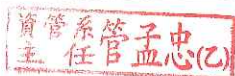 資管系
主任管孟忠(乙)